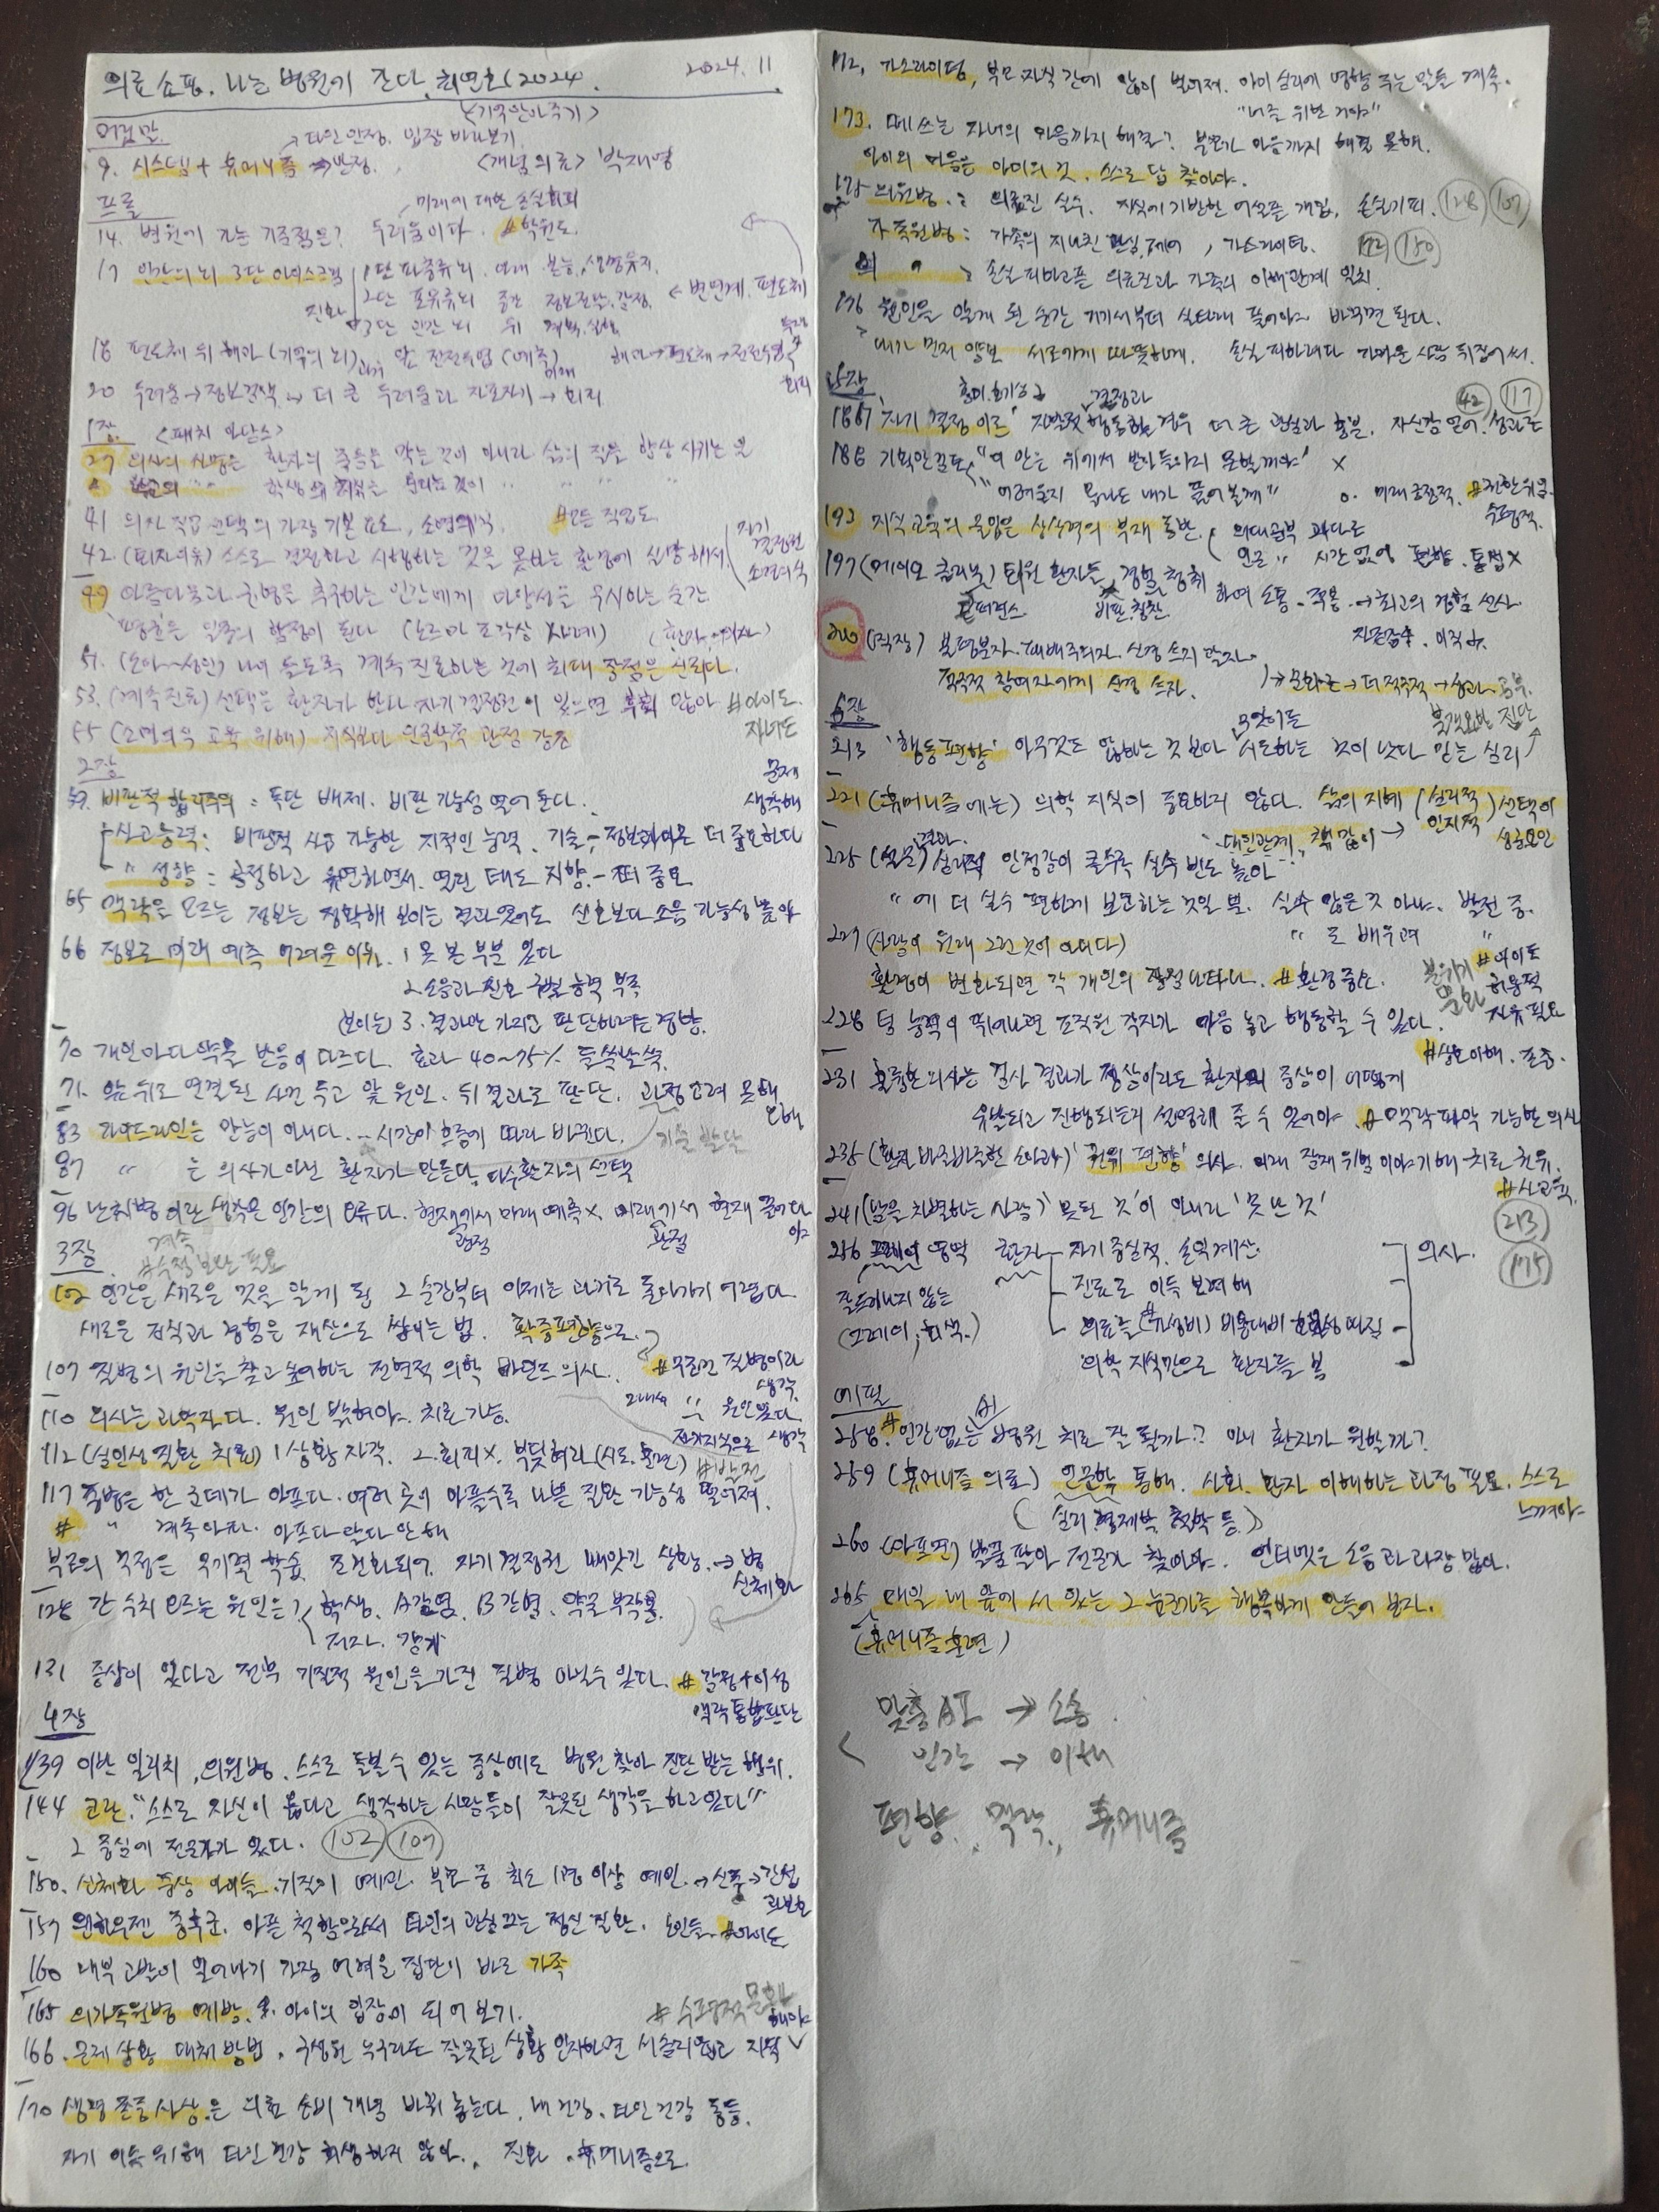 의료쇼핑, 나는 병원에 간다, 최연호(2024. 2024. 11
<기억 안아주기>
머릿말 → 타인 인정. 입장 바꿔보기
9. 시스템 + 휴머니즘 → 안정. <개념의료> 박재영
프롤 미래에 대한 손실회피
14. 병원에 가는 기준점은? 두려움이다. #학원도
17 인간의 뇌 3단 아이스크림 1단 파충류 뇌. 아래. 본능, 생명유지.
진화 2단 포유류 뇌 중간 정보전달. 감정. ← 변연계. 편도체
3단 인간 뇌 위 계획.
18 편도체 위 해마(기억의 뇌)과거 앞 전전두엽(예측)미래 해마→편도체→전전두엽
회피
20 두려움→정보검색→더 큰 두려움과 회피
1장. <패치 아담스>
27 의사의 사명은 환자의 죽음을 막는 것이 아니라 삶의 질을 향상 시키는 것
학생의
41 의사 직업 선택의 가장 기본 요소, 소명의식. #모든 직업도
42 (퇴사이유) 스스로 결정하고 시행하는 것을 못하는 환경에 실망해서 (자기 결정권 소명의식
49 아름다움과 균형을 추구하는 인간에게 다양성을 무시하는 순간
평균은 일종의 함정이 된다 (노르마 조각상 사례) (환자, 의사)
51. (소아~성인) 나이 들도록 계속 진료하는 것에 최대 장점은 신뢰다.
53. (계속진료) 선택은 환자가 한다 자기결정권이 있으면 후회 않아 #아이도.
자녀도
55 (교육 위해) 지식보다 인문학적 관점 강조
2장 문제
59. 비판적 합리주의 : 독단 배제. 비판 가능성 열어 둔다. 생각해
사고능력 : 비판적 사고 가능한 지적인 능력. 기술 – 정보 더 중요하다
〃 성향 : 공정하고 유연하면서. 열린 태도 지향. – 더 중요
65 맥락을 모르는 정보는 정확해 보이는 결과였어도 신호보다 소음 가능성 높아
66 정보로 미래 예측 어려운 이유. 1 못 본 부분 있다
2 소음과 신호 구별 능력 부족
(보이는) 3. 결과만 가지고 판단하려는 경향.
70 개인마다 약물 반응이 다르다. 효과 40~75% 들쑥날쑥.
71. 앞뒤로 연결된 사건 두고 앞 원인. 뒤 결과로 판단. 과정 고려 못해
오해
83 가이드라인은 만능이 아니다... 시간이 흐름에 따라 바뀐다. 기술 발달
87 〃 는 의사가 아닌 환자가 만든다. 다수환자의 선택
96 난치병이란 생각은 인간의 오류다. 현재에서 미래 예측 × 미래에서 현재 풀어나
관점 관점 가
3장. 계속
#수정 보완 필요
102 인간은 새로운 것을 알게 된 그 순간부터 이제는 과거로 돌아가기 어렵다.
새로운 지식과 경험은 재산으로 쌓이는 법. 확증편향으로.
107 질병의 원인을 찾고 싶어하는 전형적 의학 마인드 의사. #무조건 질병이라
생각.
110 의사는 과학자다. 원인 밝혀야. 치료 가능. 원인 있다
생각
112 (심인성 질환 치료) 1 상황 자각. 2. 회피×. 부딪혀라 (시도. 훈련) #발전
117 중병은 한 군데가 아프다. 여러 곳이 아플수록 나쁜 질환 가능성 떨어져.
# 〃 계속 아파. 아프다 말다 안해
부모의 걱정은 무기력 학습. 조건화되어. 자기결정권 빼앗긴 상황. → 병
신체화
128 간 수치 오르는 원인은? 학생. A감염. B간염. 약물 부작용.
저자.
131 증상이 있다고 전부 기질적 원인을 가진 질병 아닐수 있다. #감정+이성
맥락 통합 판단
4장
139 이반 일리치, 의원병. 스스로 돌볼 수 있는 증상에도 병원 찾아 진단 받는 행위.
144 코란. "스스로 자신이 옳다고 생각하는 사람들이 잘못된 생각을 하고있다"
그 중심에 전문가가 있다. (102) (107)
150. 신체화 증상 아이들. 기질이 예민. 부모 중 최소 1명 이상 예민. → 간섭
과보호
157 뮌하우젠 증후군. 아픈 척함으로써 타인의 관심 끄는 정신질환. 노인들. #아이들
160 내부 고발이 일어나기 가장 어려운 집단이 바로 가족
165 의가족원병 예방. 아이의 입장이 되어 보기. #수평적 문화
해야
166. 문제상황 대처 방법. 구성원 누구라도 잘못된 상황 인지하면 서슴지않고 지적
170 생명 존중사상은 의료 소비 개념 바꿔 놓는다. 내 건강. 타인 건강 동등.
자기 이득 위해 타인 건강 희생하지 않아. 진화. 휴머니즘으로.
172. 가스라이팅, 부모 자식간에 많이 벌어져. 아이 심리에 영향 주는 말들 계속.
"너를 위한 거야"
173. 떼쓰는 자녀의 마음까지 해결? 부모가 마음까지 해결 못해.
아이의 마음은 아이의 것. 스스로 답 찾아야.
175 의원병 : 의료진 실수. 지식에 기반한 어설픈 개입. 손실기피. (128) (107)
가족원병 : 가족의 지나친 관심, 케어, 가스라이팅. (172) (150)
의 〃 : 손실 피하고픈 의료진과 가족의 이해관계 일치.
176 원인을 알게 된 순간 거기서부터 실타래 풀어야 바꾸면 된다.
내가 먼저 양보 서로에게 따뜻하게. 손실 피하려다
5장 흥미. 호기심 결정과 (42) (117)
186 '자기 결정 이론' 자발적 행동하는 경우 더 큰 관심과 흥분. 자신감 얻어. 성과도
188 기획안 검토, "이 안은 위에서 받아들이지 못할꺼야" ×
"어려울지 몰라도 내가 풀어볼게" ○. 미래 긍정적. #권한위임
수평적.
193 지식교육의 몰입은 상상력의 부재 동반. 의대공부 과다로
인문 〃 시간없어 편향. 통섭×
197 (메이요 클리닉) 퇴원 환자들 경험 청취 하여 소통. 적용. → 최고의 경험 선사.
컨퍼런스 비판. 칭찬
200 (직장) 불평분자. 신경 쓰지 말자.
적극적 참여자에게 신경 쓰자. → 문화 → 더 적극적 → 성과.
6장
213 '행동편향' 아무것도 안하는 것보다 무엇이든 시도하는 것이 낫다 믿는 심리
221 (휴머니즘에는) 의학 지식이 중요하지 않다. 삶의 지혜 (심리적 인지적) 선택이
대인관계, 책 많이 → 성공요인
225 (설문)결과 심리적 안정감이 클수록 실수 빈도 높아
〃 에 더 실수 편하게 보고하는 것일 뿐. 실수 많은 것 아냐. 발전 중.
227 (사람이 원래 그런 것이 아니다) 〃 로 배우며 〃
환경이 변화되면 각 개인의 장점 나타나. #환경 중요. 분위기 문화 #아이도
허용적
228 팀 능력이 뛰어나면 조직원 각자가 마음 놓고 행동할 수 있다. 자유 필요
#상호이해. 존중.
231 훌륭한 의사는 검사 결과가 정상이라도 환자의 증상이 어떻게
유발되고 진행되는지 설명해 줄 수 있어야. #맥락 파악 가능한 의사
235 '권위 편향' 의사. 미래 잠재 위험 이야기해 치료 권유.
#사교육.
241 (남을 차별하는 사람) '못된 것'이 아니라 '못난 것' (213)
256 그레이 영역 환자 자기 중심적. 손익계산. 의사. (175)
잘 드러나지 않는 진료로 이득 보려 해
(그레이, 회색.) 의료를 (가성비) 비용대비 효과성 따짐
의학 지식만으로 환자를 봄
에필
258. #인간 없는 AI 병원 치료 잘 될까? 아니 환자가 원할까?
259 (휴머니즘 의료) 인문학 통해. 사회. 환자 이해하는 과정 필요. 스스로
(심리, 철학 등) 느껴야
260 (아프면) 발품 팔아 전문가 찾아야. 인터넷은 소음과 과장 많아.
265 매일 내 앞에 서 있는 그 누군가를 행복하게 만들어 보자.
(휴머니즘 훈련)
맞춤AI → 소통.
인간 → 이해
편향, 맥락, 휴머니즘